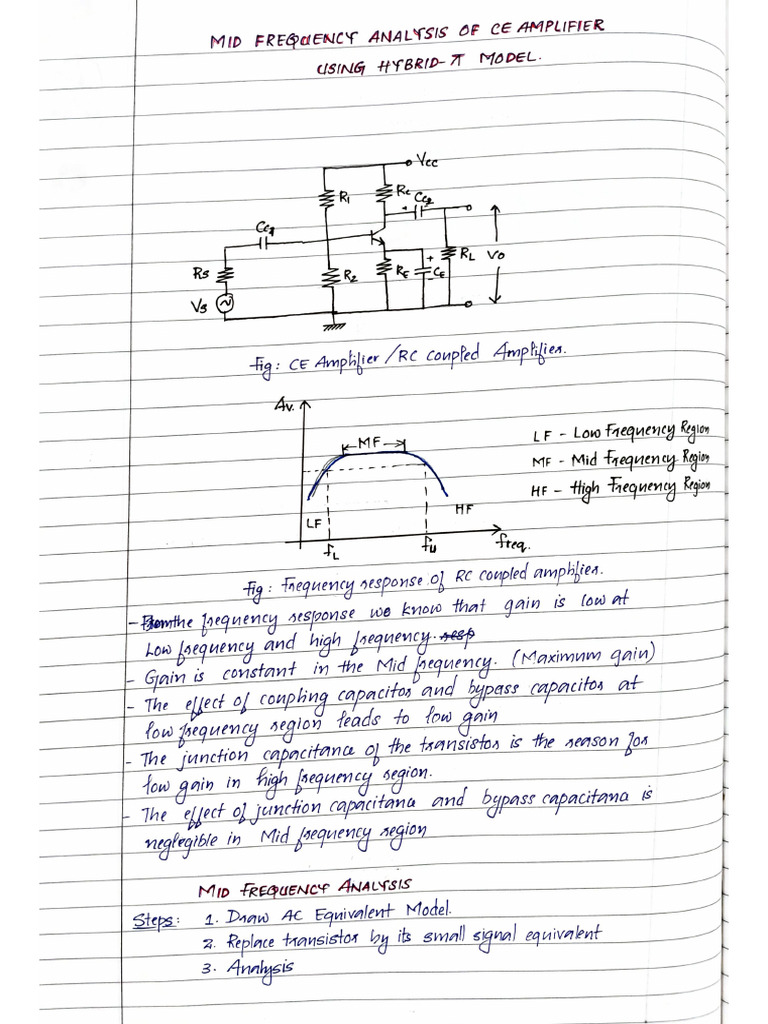 MID FREQUENCY ANALYSIS OF CE AMPLIFIER
USING HYBRID-π MODEL.
Vcc
R1
Rc
Cc2
Cc1
Rs
R2
RE
CE
RL
Vo
Vs
Fig: CE Amplifier / RC coupled Amplifier.
Av.
MF
LF - Low Frequency Region
MF - Mid Frequency Region
HF - High Frequency Region
LF
HF
fL
fH
freq.
Fig: Frequency response of RC coupled amplifier.
- From the frequency response we know that gain is low at
Low frequency and high frequency. resp
- Gain is constant in the Mid frequency. (Maximum gain)
- The effect of coupling capacitor and bypass capacitor at
low frequency region leads to low gain
- The junction capacitance of the transistor is the reason for
low gain in high frequency region.
- The effect of junction capacitana and bypass capacitana is
neglegible in Mid frequency region
MID FREQUENCY ANALYSIS
Steps: 1. Draw AC Equivalent Model.
2. Replace transistor by its small signal equivalent
3. Analysis